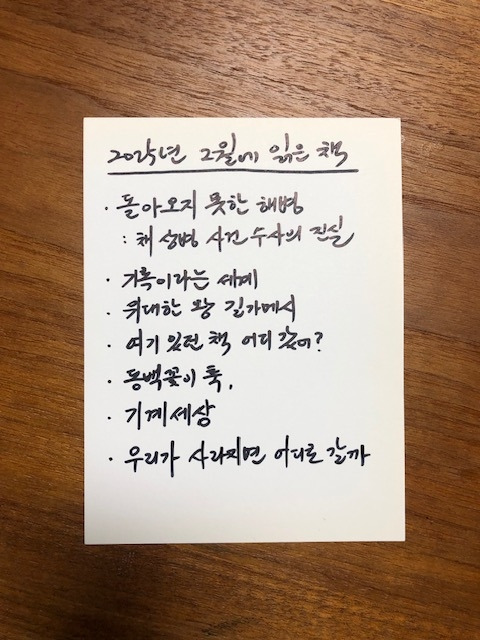 2025년 2월에 읽은 책
· 돌아오지 못한 해병
: 채 상병 사건 수사의 진실
· 기록이라는 세계
· 위대한 왕 길가메시
· 여기 있던 책 어디 갔어?
· 동백꽃이 툭,
· 기계 세상
· 우리가 사라지면 어디로 갈까